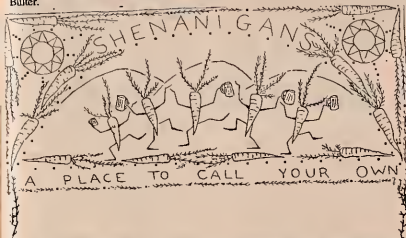 Buster.
SHENANIGANS
A PLACE TO CALL YOUR OWN